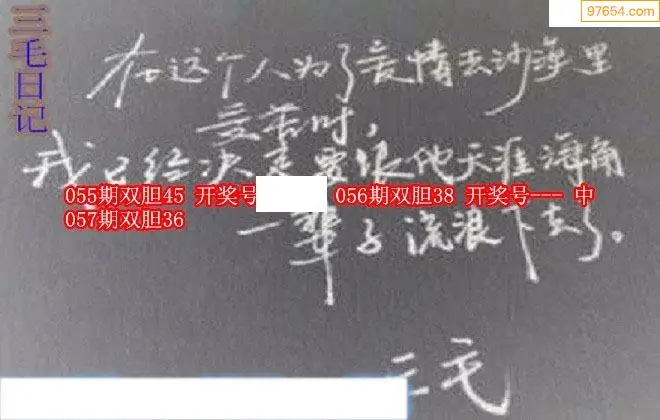 97654.com
三毛日记
在这个人为了爱情去沙漠里
受苦时，
我已经决定要跟他天涯海角
055期双胆45 开奖号 056期双胆38 开奖号--- 中
057期双胆36
一辈子流浪下去了。
三毛